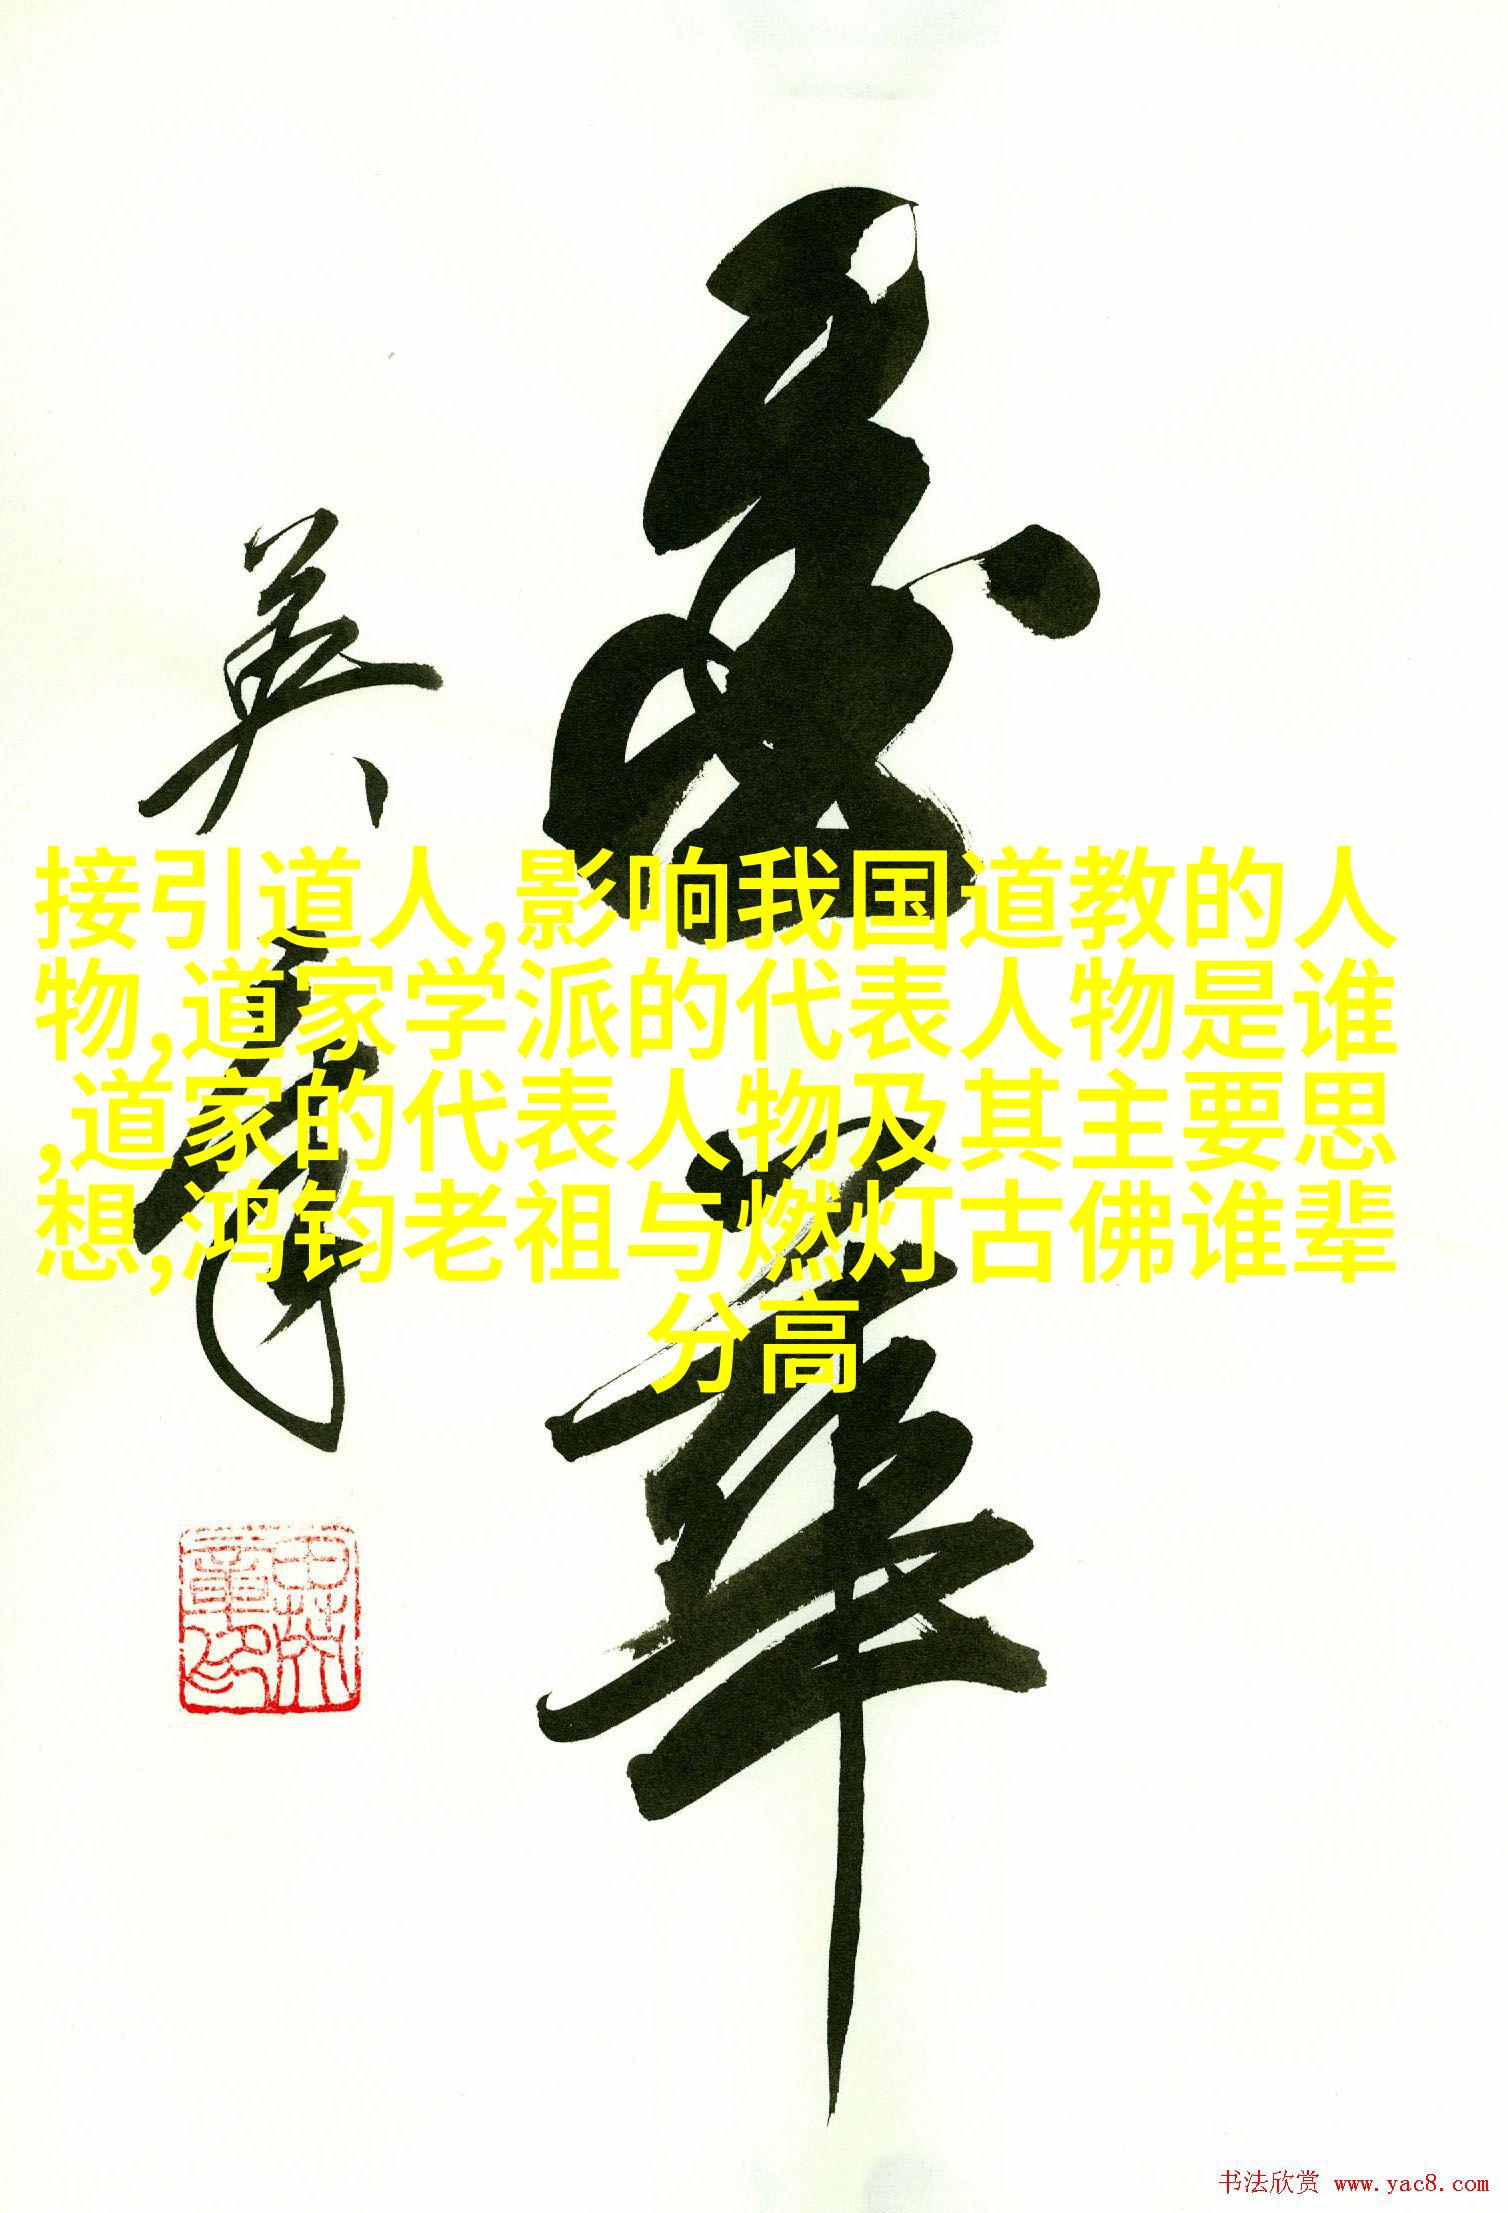 接引道人,影响我国道教的人
物,道家学派的代表人物是谁
,道家的代表人物及其主要思
想,鸿钧老祖与燃灯古佛谁辈
分高
英章
书法欣赏 www.yac8.com